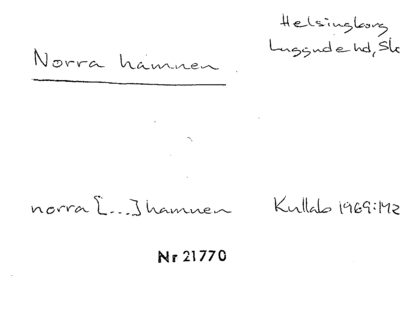 Helsingborg
Norra hamnen
Luggude hd, Sk
norra [...] hamnen
Kullabo 1969:142
Nr 21770